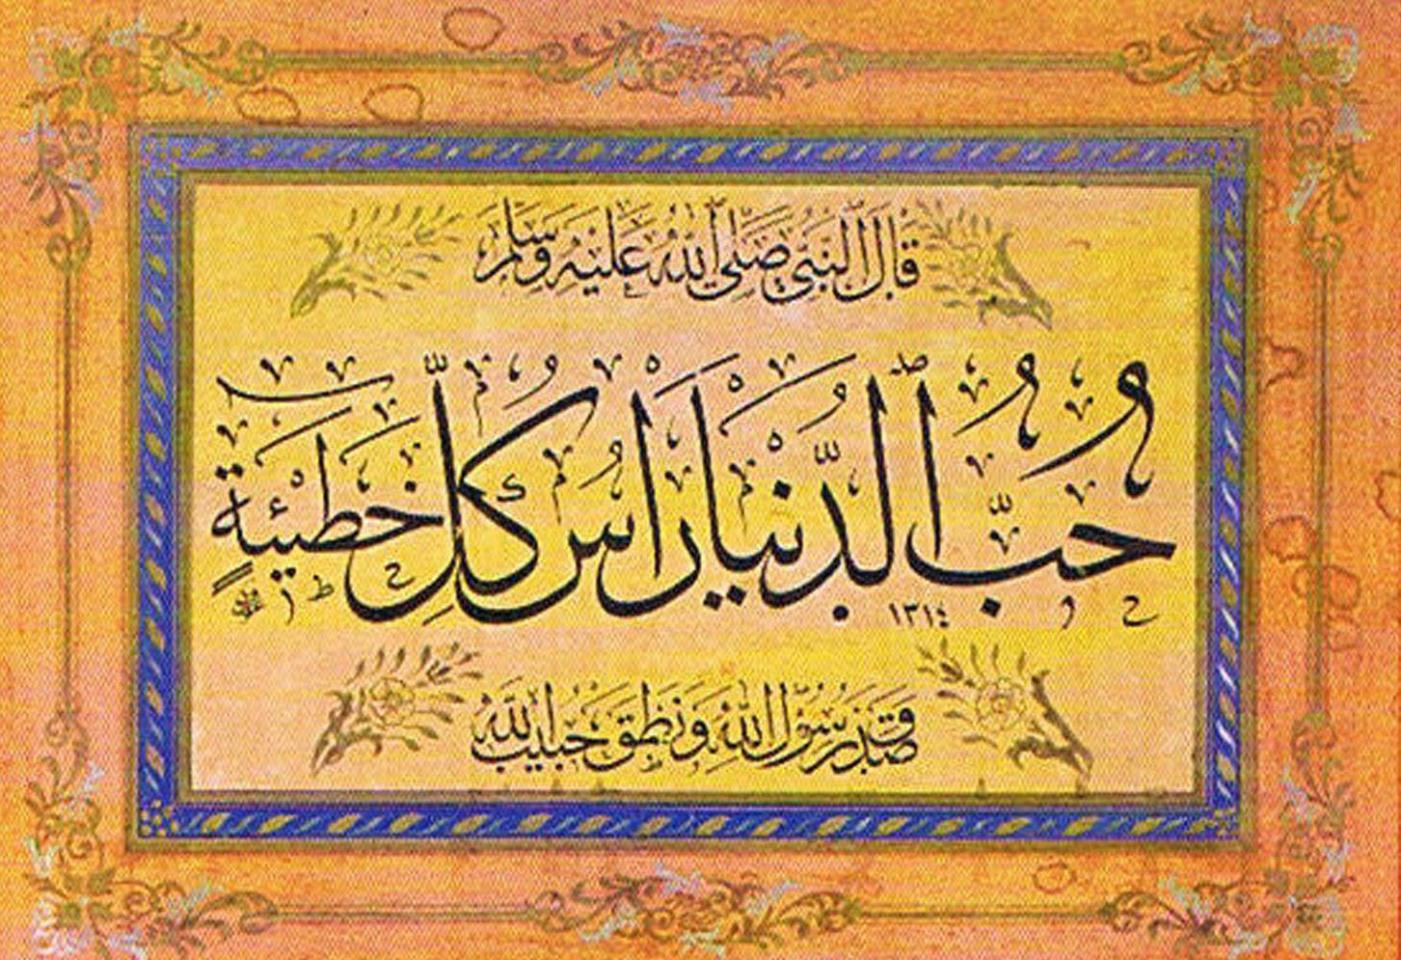 قال النبي صلى الله عليه وسلم
حُبُّ الدُّنْيَا رَاسُ كُلِّ خَطِيئَةٍ
١٣١٤
صدق رسول الله ونطق حبيب الله